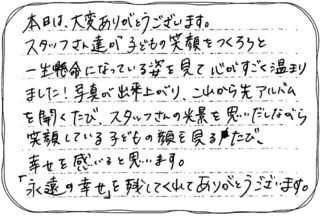 本日は、大変ありがとうございます。
スタッフさん達が子どもの笑顔をつくろうと
一生懸命になっている姿を見て心がすごく温まり
ました!写真が出来上がり、これから先アルバム
を開くたび、スタッフさんの光景を思いだしながら
笑顔している子どもの顔を見るたび、
幸せを感じると思います。
「永遠の幸せ」を残してくれてありがとうございます。